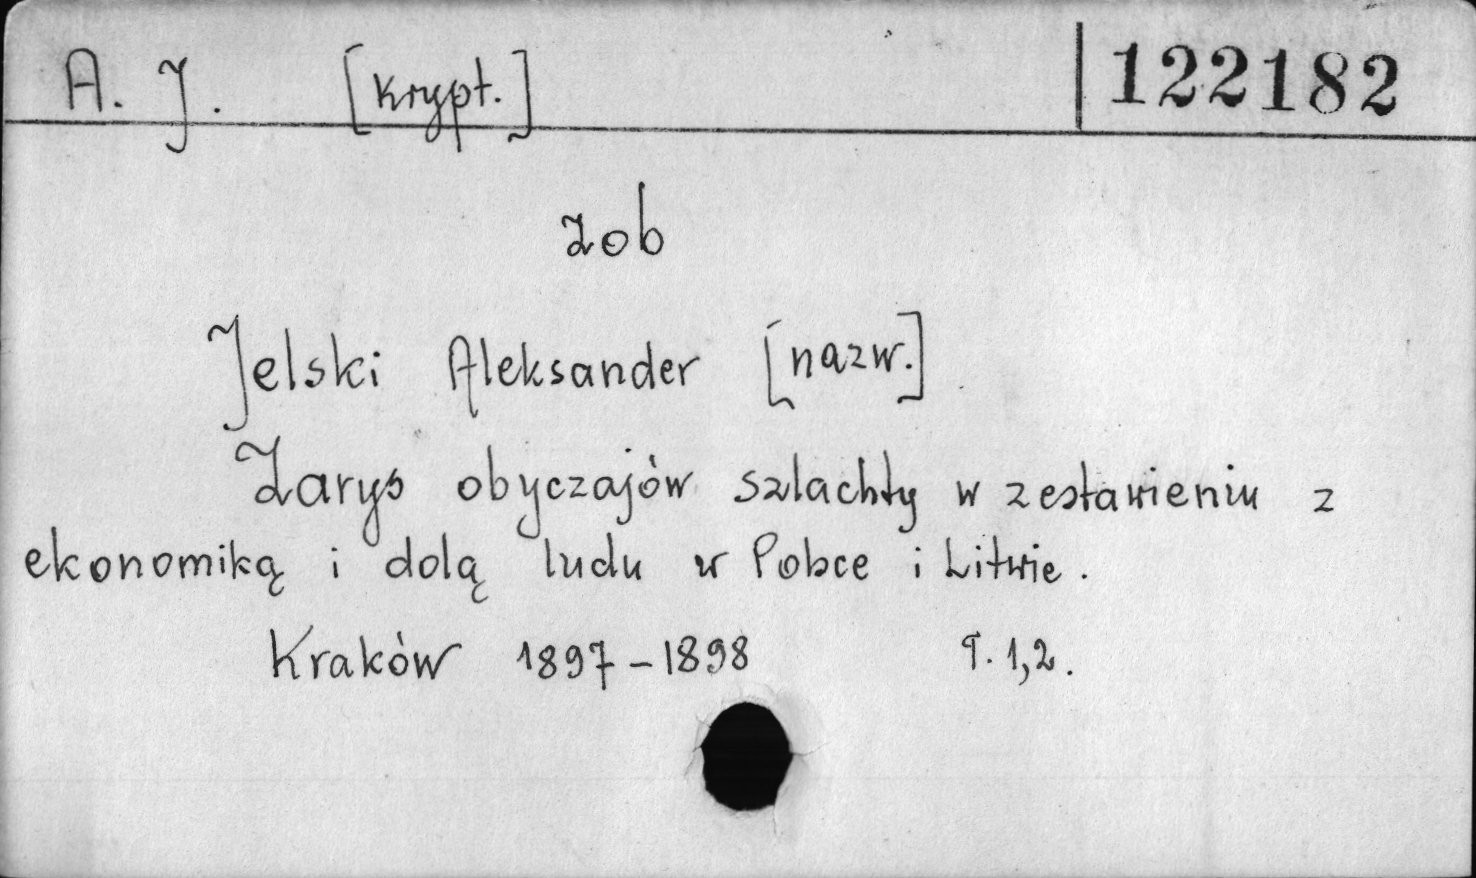 A. J. [Krypt.] 122182
zob
Jelski Aleksander [nazw.]
Zarys obyczajów szlachty w zestawieniu z
ekonomiką i dolą ludu w Polsce i Litwie.
Kraków 1897-1898 T. 1,2.